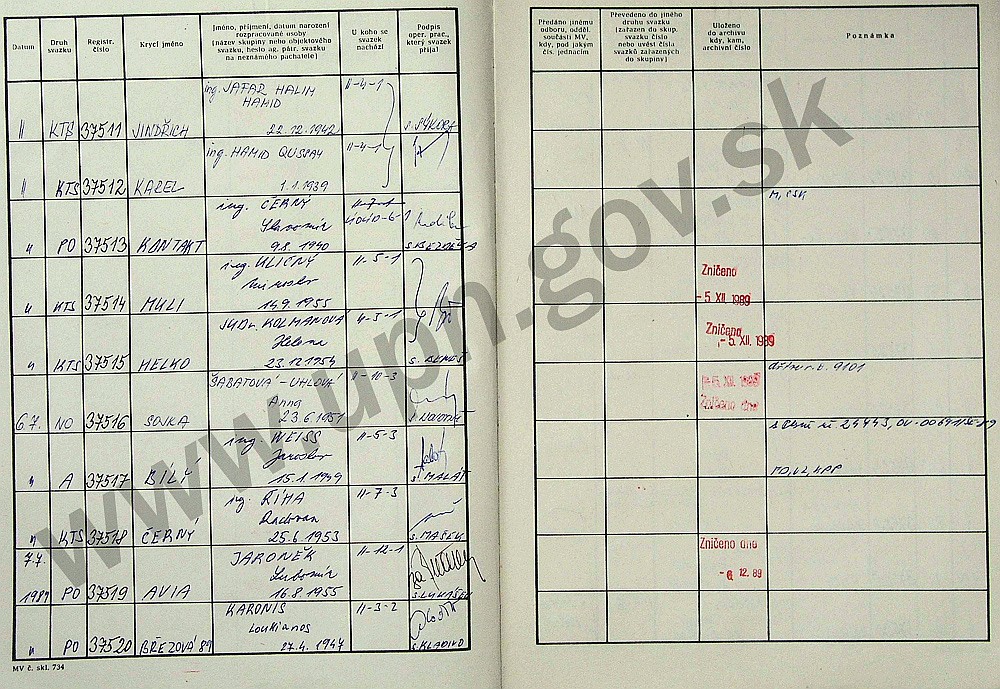 Datum
Druh
svazku
Registr.
číslo
Krycí jméno
Jméno, příjmení, datum narození
rozpracované osoby
(název skupiny nebo objektového
svazku, heslo ag. pátr. svazku
na neznámého pachatele)
U koho se
svazek
nachází
Podpis
oper. prac.,
který svazek
přijal
Předáno jinému
odboru, odděl.
součásti MV,
kdy, pod jakým
čís. jednacím
Převedeno do jiného
druhu svazku
(zařazen do skup.
svazku číslo
nebo uvést čísla
svazků zařazených
do skupiny)
Uloženo
do archivu
kdy, kam,
archivní číslo
Poznámka
ing. JAFAR HALIM
HAMID
II-4-1
II KTS 37511 JINDŘICH 22.12.1942 s. SÝKORA
ing. HAMID QUSSAY II-4-1
II KTS 37512 KAREL 1.1.1939
ing. ČERNÝ
Slavomír
PO 37513 KONTAKT 9.8.1940
ing. ULIČNÝ II-5-1
Miroslav
KTS 37514 MULI 14.9.1955
Zničeno
- 5. XII. 1989
JUDr. KOLMANOVÁ II-5-1
Helena
KTS 37515 HELKO 23.12.1954
Zničeno
- 5. XII. 1989
ŠABATOVÁ - UHLOVÁ II-10-3
Anna
6.7. NO 37516 SOJKA 23.6.1951
- 5. XII. 1989
Zničeno dne
ing. WEISS II-5-3
Jaroslav
A 37517 BÍLÝ 15.1.1949 s. MALÁT
ing. ŘÍHA II-7-3
Radovan
KTS 37518 ČERNÝ 25.6.1953 s. MAŠEK
7.7. JARONĚK II-12-1
Lubomír
1989 PO 37519 AVIA 16.8.1955
Zničeno dne
- 6. 12. 89
KARONIS II-3-2
Loukianos
PO 37520 BŘEZOVÁ 89 27.4.1947 s. KLADIVO
MV č. skl. 734
www.upn.gov.sk